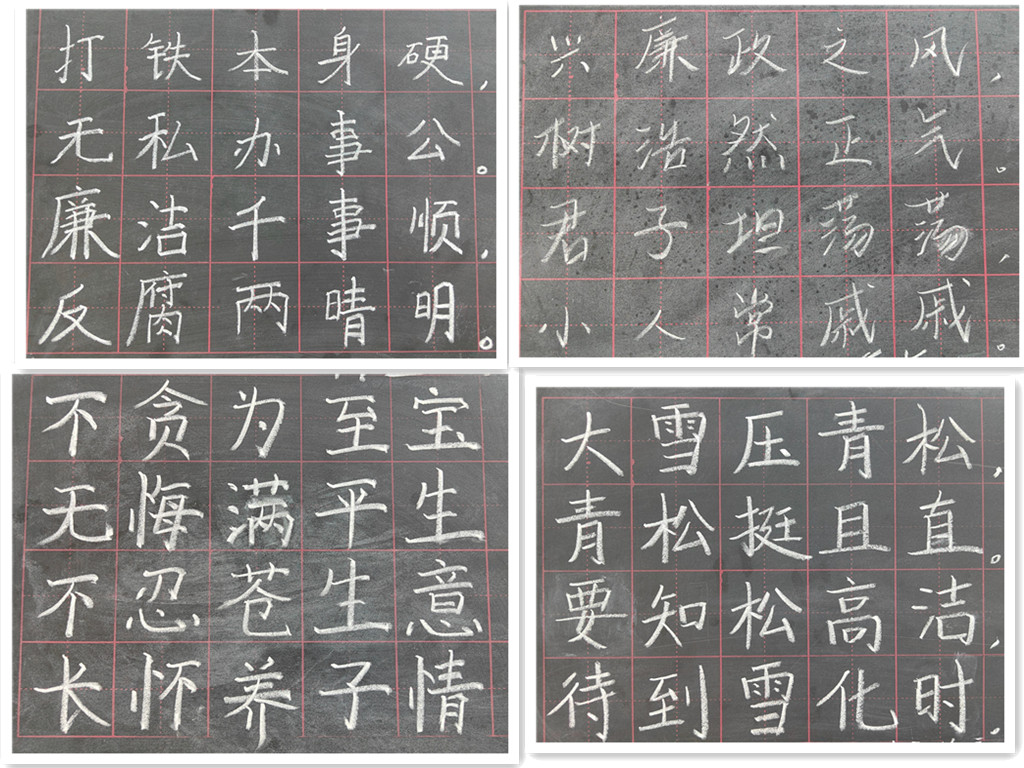 打铁本身硬，
无私办事公。
廉洁千事顺，
反腐两晴明。
兴廉政之风，
树浩然正气。
君子坦荡荡，
小人常戚戚。
不贪为至宝
无悔满平生
不忍苍生意
长怀养子情
大雪压青松，
青松挺且直。
要知松高洁，
待到雪化时。